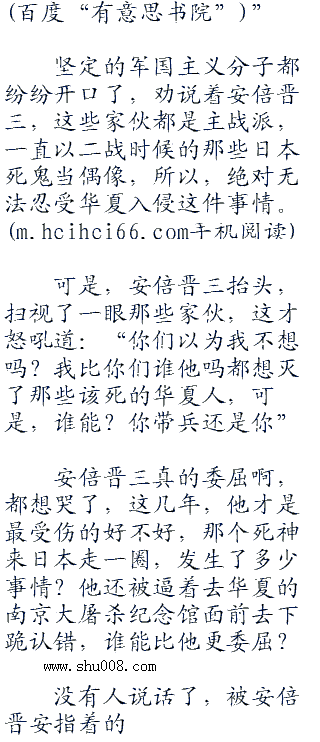 (百度“有意思书院”)”
坚定的军国主义分子都
纷纷开口了，劝说着安倍晋
三，这些家伙都是主战派，
一直以二战时候的那些日本
死鬼当偶像，所以，绝对无
法忍受华夏入侵这件事情。
(m.hcihci66.com手机阅读)
可是，安倍晋三抬头，
扫视了一眼那些家伙，这才
怒吼道：“你们以为我不想
吗？我比你们谁他吗都想灭
了那些该死的华夏人，可
是，谁能？你带兵还是你”
安倍晋三真的委屈啊，
都想哭了，这几年，他才是
最受伤的好不好，那个死神
来日本走一圈，发生了多少
事情？他还被逼着去华夏的
南京大屠杀纪念馆面前去下
跪认错，谁能比他更委屈？
www.shu008.com
没有人说话了，被安倍
晋安指着的